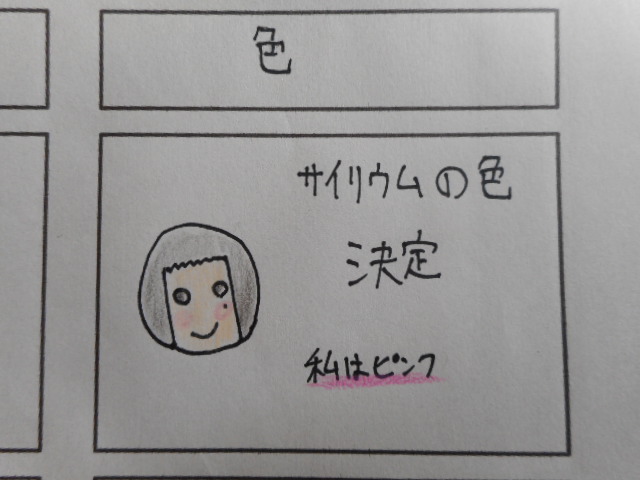 色
サイリウムの色
決定
私はピンク